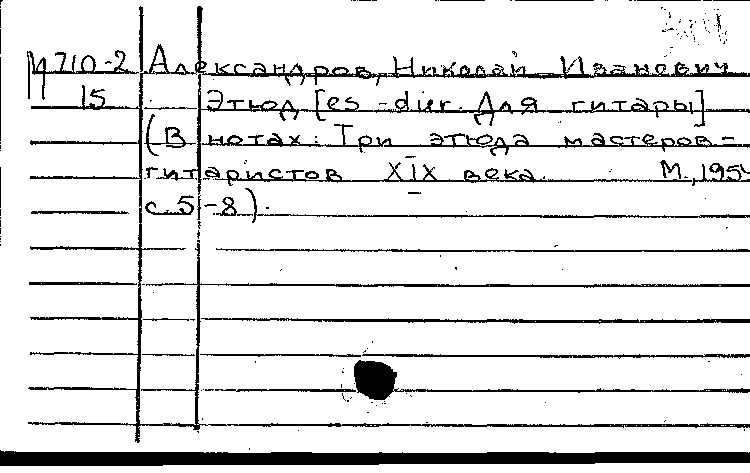 М 710-2 Александров, Николай Иванович
15 Этюд [es-dur. Для гитары]
(В нотах: Три этюда мастеров-
гитаристов XIX века М., 195
с. 5-8).